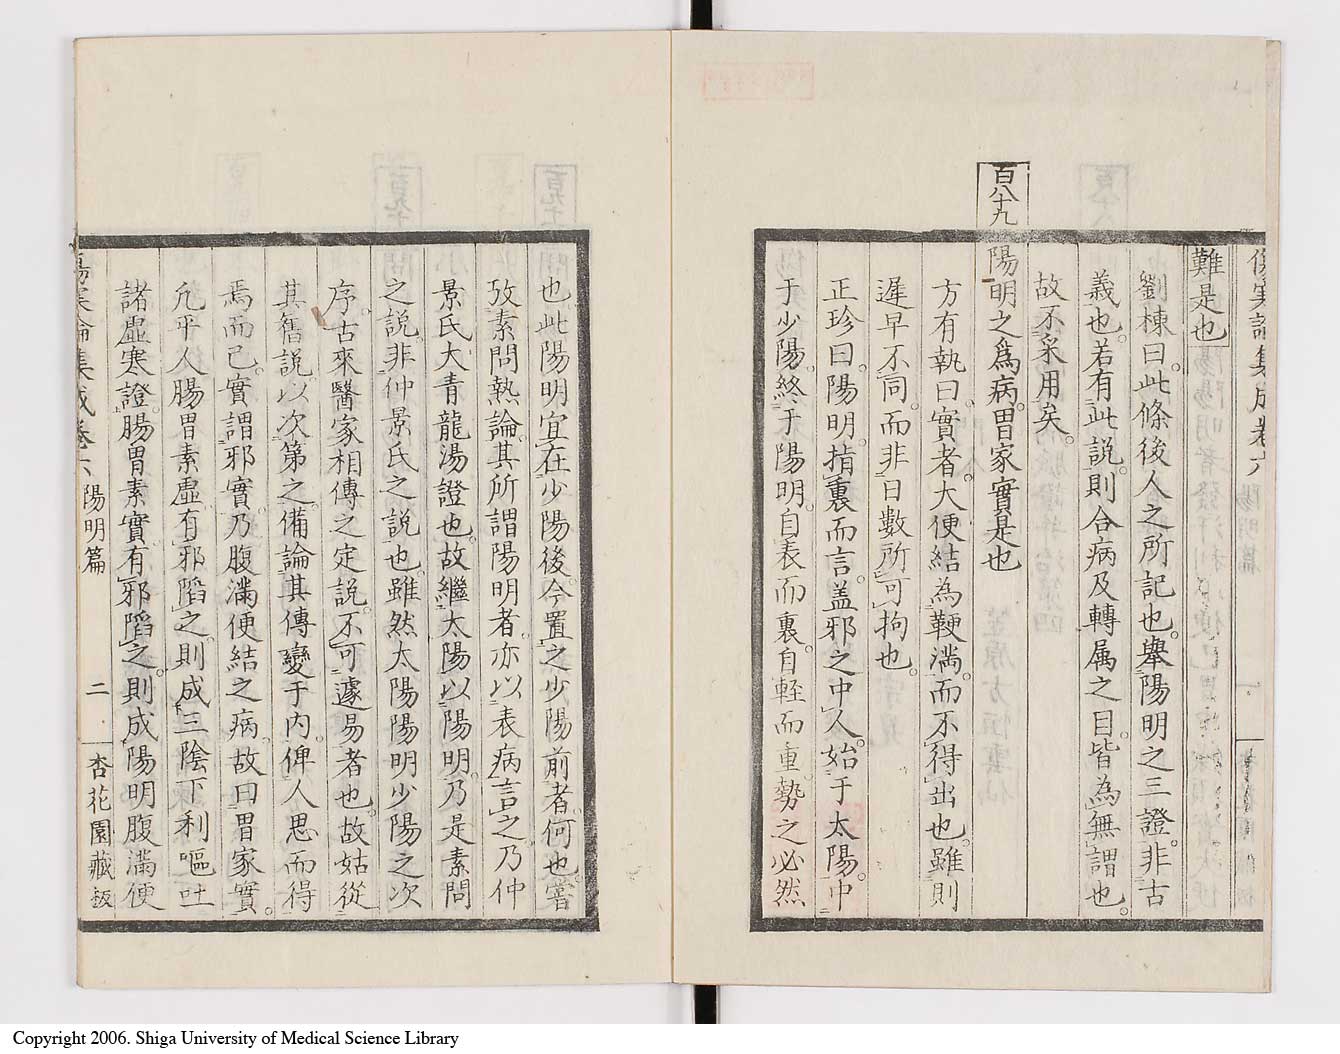 傷寒論集成卷六 陽明篇 一
難是也
劉棟曰。此條後人之所記也。舉陽明之三證。非古
義也。若有此說。則合病及轉属之目。皆為無謂也。
故不采用矣。
百八十九
陽明之爲病。胃家實是也
方有執曰。實者。大便結為鞕満。而不得出也。雖則
遲早不同。而非日數所可拘也。
正珍曰。陽明。指裏而言。盖邪之中人。始于太陽。中
于少陽。終于陽明。自表而裏。自軽而重。勢之必然
也此陽明宜在少陽後。今置之少陽前者。何也。嘗
攷素問熱論。其所謂陽明者。亦以表病言之。乃仲
景氏大青龍湯證也。故繼太陽以陽明。乃是素問
之說。非仲景氏之說也。雖然太陽陽明少陽之次
序。古來醫家相傳之定說。不可遽易者也。故姑從
其舊說。以次第之。備論其傳變于内。俾人思而得
焉而已。實謂邪實。乃腹滿便結之病。故曰胃家實。
凢平人腸胃素虛。有邪蹈之。則成三陰下利嘔吐
諸虛寒證。腸胃素實。有邪蹈之。則成陽明腹滿便
傷寒論集成卷六 陽明篇 二 杏花園藏板
Copyright 2006. Shiga University of Medical Science Library